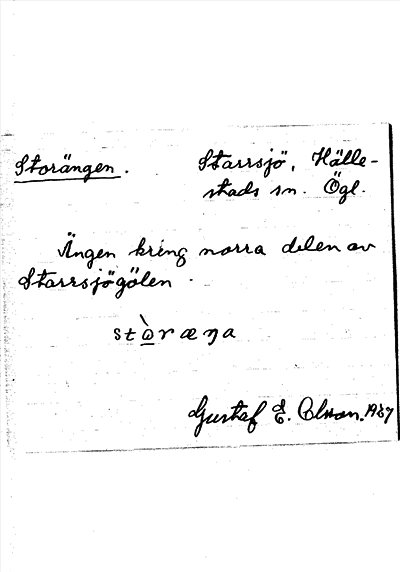 Storängen.
Starrsjö, Hälle-
stads sn. Ögl.
Ängen kring norra delen av
Starrsjögölen.
stò̲ræŋa
Gustaf E. Olsson. 1937